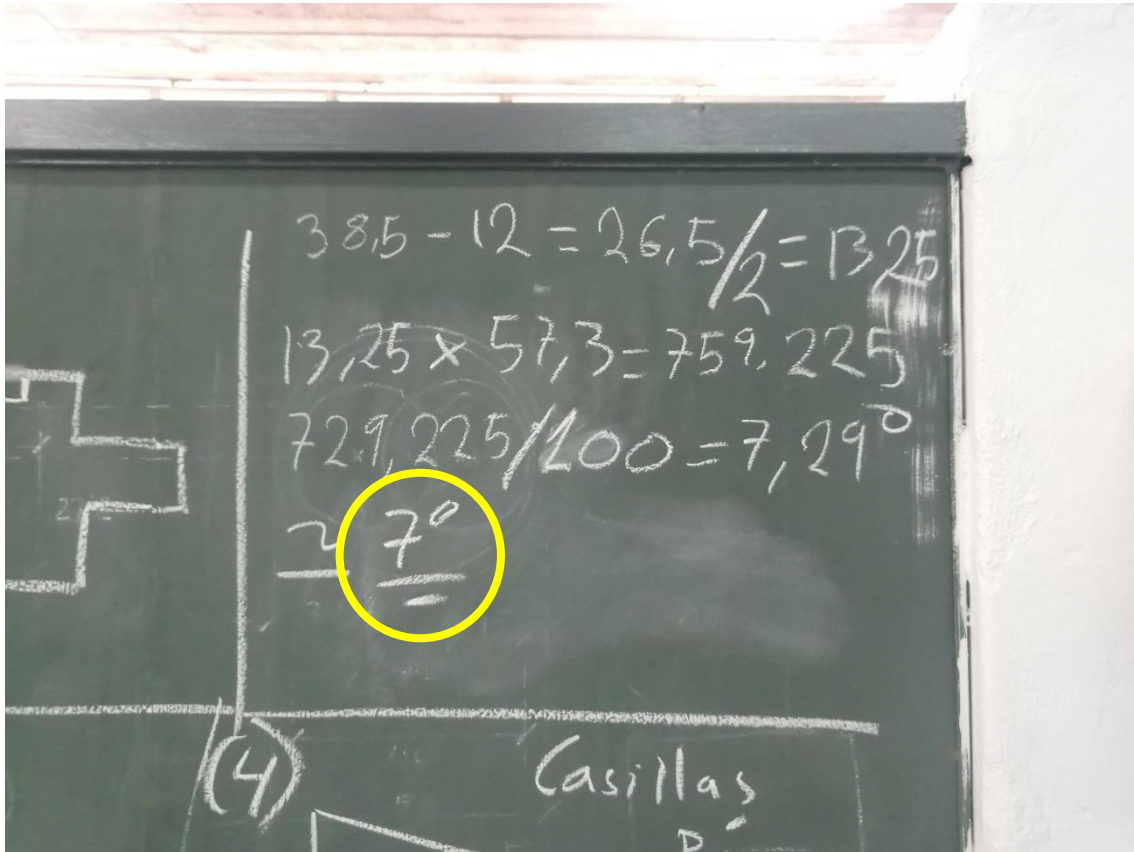 38,5 - 12 = 26,5/2 = 13,25
13,25 × 57,3 = 759,225
729,225/100 = 7,29°
≃ 7°
(4)
Casillas